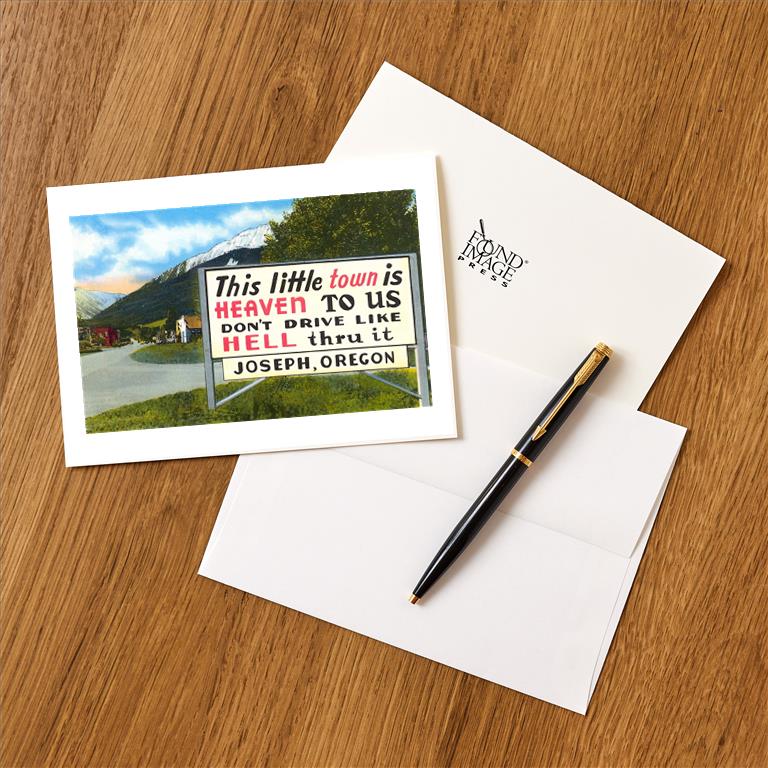 This little town is
HEAVEN TO US
DON'T DRIVE LIKE
HELL thru it
JOSEPH, OREGON
FOUND
IMAGE®
PRESS